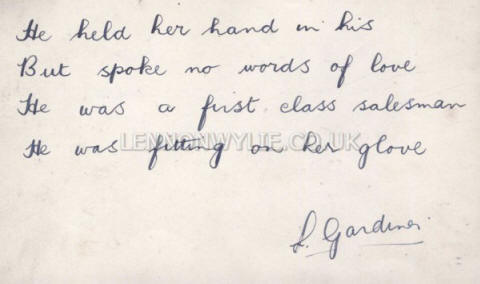 He held her hand in his
But spoke no words of love
He was a first class salesman
LENNONWYLIE.CO.UK
He was fitting on her glove
L. Gardiner